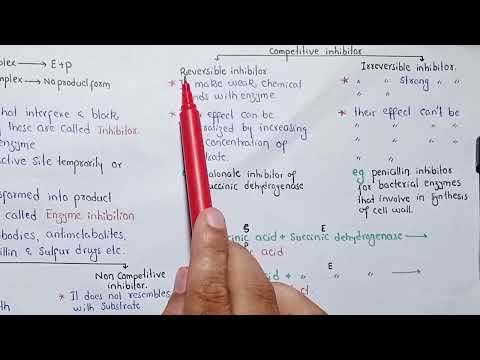 Competitive inhibitor
plex → E+P
mplex → No product form
that interfere & block
these are called Inhibitor.
enzyme
active Site temporarily or
sformed into product
called Enzyme inhibition
bodies, antimetabolites.
illin & Sulpur drugs etc.
Non Competitive
inhibitor.
* It does not resembles
with Substrate
Reversible inhibitor
* make weak chemical
nds with enzyme
* effect can be
ralized by increasing
concentration of
strate.
alonate inhibitor of
succinic dehydrogenase
Irreversible inhibitor.
* " " strong " "
" " "
* their effect can't be
" " "
" "
eg penicillin inhibitor
for bacterial enzymes
that involve in synthesis
of cell wall.
S E
inic acid + Succinic dehydrogenase →
P
ic acid
E
acid + " " →